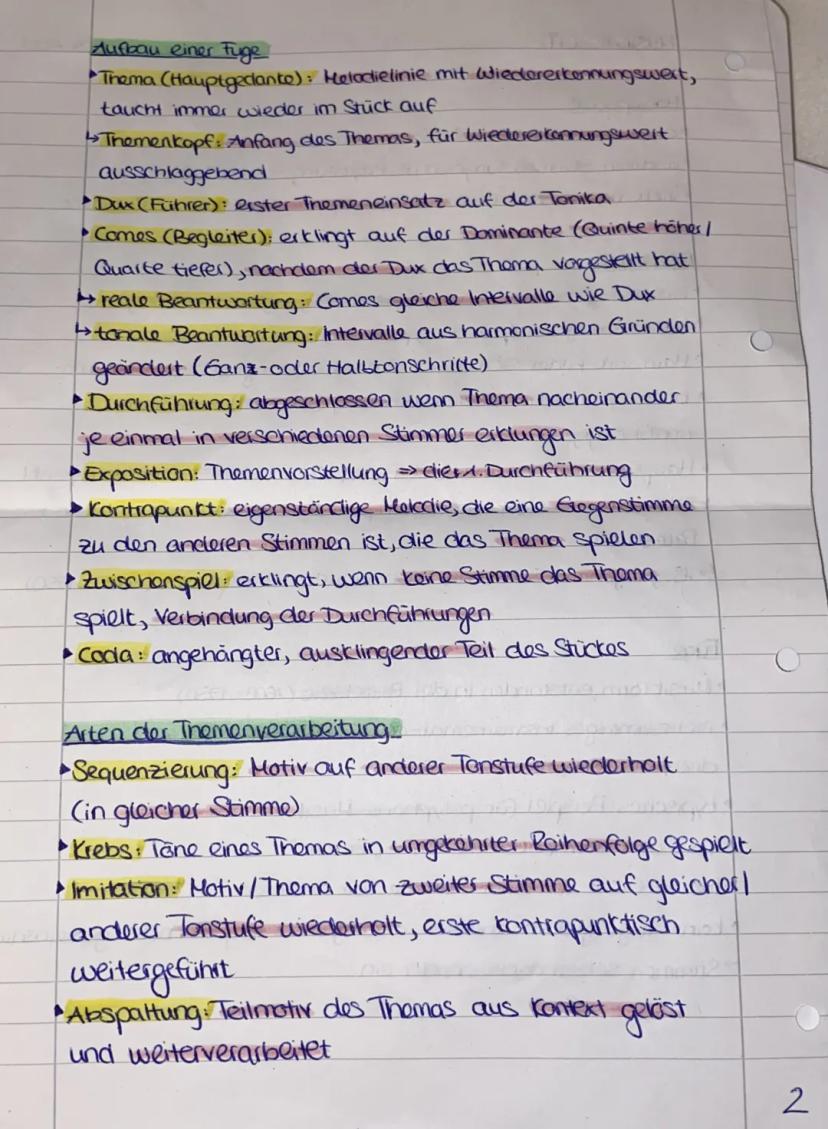 Aufbau einer Fuge
▸Thema (Hauptgedanke): Melodielinie mit Wiedererkennungswert,
taucht immer wieder im Stück auf
↳Themenkopf: Anfang des Themas, für Wiedererkennungswert
ausschlaggebend
▸Dux (Führer): erster Themeneinsatz auf der Tonika
▸Comes (Begleiter): erklingt auf der Dominante (Quinte höher/
Quarte tiefer), nachdem der Dux das Thema vorgestellt hat
↳reale Beantwortung: Comes gleiche Intervalle wie Dux
↳tonale Beantwortung: Intervalle aus harmonischen Gründen
geändert (Ganz- oder Halbtonschritte)
▸Durchführung: abgeschlossen wenn Thema nacheinander
je einmal in verschiedenen Stimmen erklungen ist
▸Exposition: Themenvorstellung ⇒ die 1. Durchführung
▸Kontrapunkt: eigenständige Melodie, die eine Gegenstimme
zu den anderen Stimmen ist, die das Thema spielen
▸Zwischenspiel: erklingt, wenn keine Stimme das Thema
spielt, Verbindung der Durchführungen
▸Coda: angehängter, ausklingender Teil des Stückes
Arten der Themenverarbeitung
▸Sequenzierung: Motiv auf anderer Tonstufe wiederholt
(in gleicher Stimme)
▸Krebs: Töne eines Themas in umgekehrter Reihenfolge gespielt
▸Imitation: Motiv/Thema von zweiter Stimme auf gleicher/
anderer Tonstufe wiederholt, erste kontrapunktisch
weitergeführt
▸Abspaltung: Teilmotiv des Themas aus Kontext gelöst
und weiterverarbeitet
2